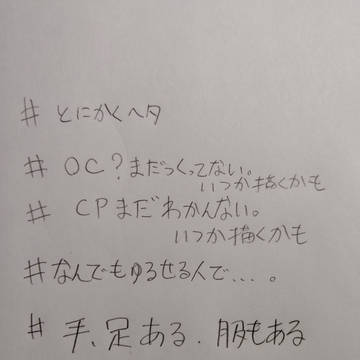 # とにかくヘタ
# OC?まだつくってない。
いつか描くかも
# CPまだわかんない。
いつか描くかも
#なんでもゆるせる人で…。
# 手、足ある.服もある